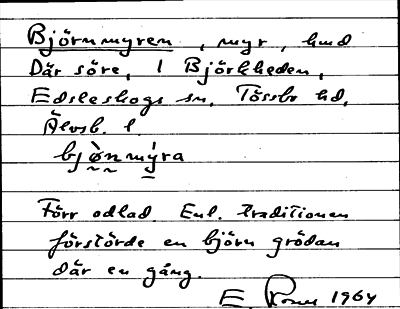 Björnmyren, myr, hmd
Där söre, 1 Björkheden,
Edsleskogs sn, Tössbo hd,
Älvsb. l.
bjὸ̰n̰mý̱ra
Förr odlad. Enl. traditionen
förstörde en björn grödan
där en gång.
E. 1964